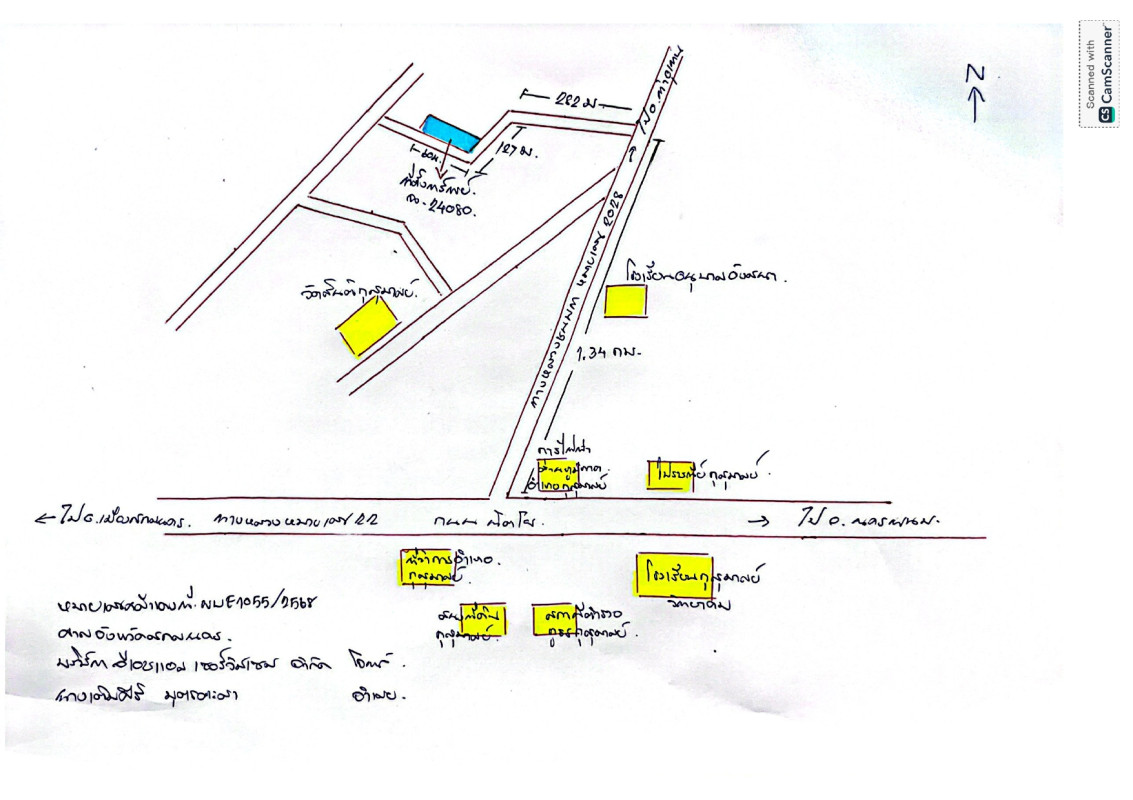 Scanned with
CS CamScanner
Z
ไป อ.ท่าอุเทน
222 ม
127 ม.
60ม.
ที่ตั้งทรัพย์.
ฉ.24080.
ทางหลวงชนบท หมายเลข 2028
วัดสันติกุสุมาลย์.
โรงเรียนอนุบาล
1.34 กม.
การไฟฟ้า
ส่วนภูมิภาค.
อำเภอกุสุมาลย์
ไปรษณีย์ กุสุมาลย์.
← ไป อ.เมืองสกลนคร. ทางหลวงหมายเลข 22 ถนน นิตโย. → ไป จ. นครพนม.
ที่ว่าการอำเภอ
กุสุมาลย์.
โรงเรียนกุสุมาลย์
วิทยาคม
ที่ดิน
กุสุมาลย์.
สถานีตำรวจ
ภูธรกุสุมาลย์.
ศาลจังหวัดสกลนคร.
จำกัด โจทก์.
จำเลย.